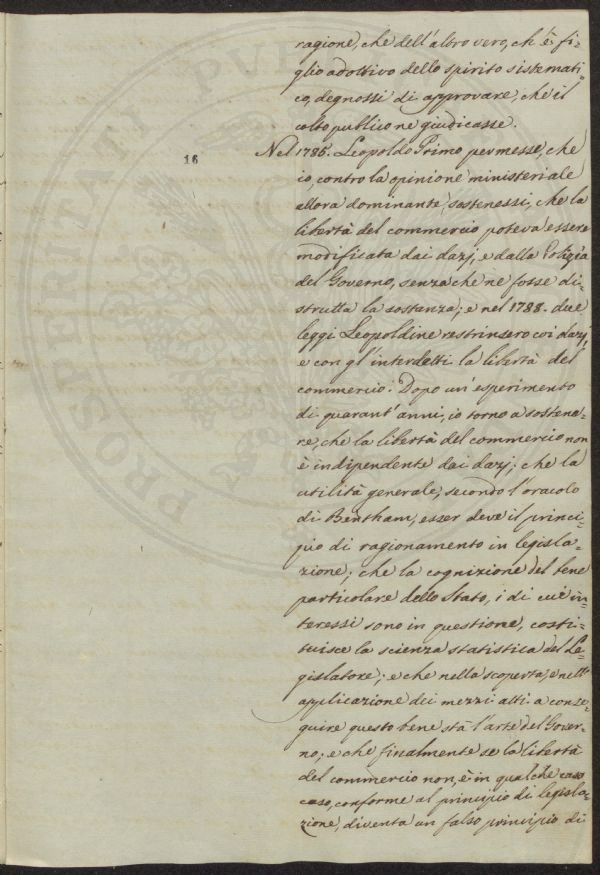 ragione, che dell'altro vero, ch'è fi-
glio adottivo dello spirito sistemati-
co, degnossi di approvare, che il
colto publico ne giudicasse.
16
Nel 1786. Leopoldo Primo permesse, che
io, contro la opinione ministeriale
allora dominante, sostenessi, che la
libertà del commercio poteva essere
modificata dai dazj, e dalla Polizia
del Governo, senza che ne fosse di-
strutta la sostanza; e nel 1788. due
leggi Leopoldine restrinsero coi dazj,
e con gl'interdetti la libertà del
commercio. Dopo un'esperimento
di quarant'anni, io torno a sostene-
re, che la libertà del commercio non
è indipendente dai dazj; che la
utilità generale, secondo l'oracolo
di Bentham, esser deve il princi-
pio di ragionamento in legisla-
zione; che la cognizione del bene
particolare dello Stato, i di cui in-
teressi sono in questione, costi-
tuisce la scienza statistica del Le-
gislatore; e che nella scoperta, e nell'
applicazione dei mezzi atti a conse-
guire questo bene stà l'arte del Gover-
no; e che finalmente se la libertà
del commercio non, è in qualche caso
caso, conforme al principio di legisla-
zione, diventa un falso principio di
PROSPERITATI PUBLICAE